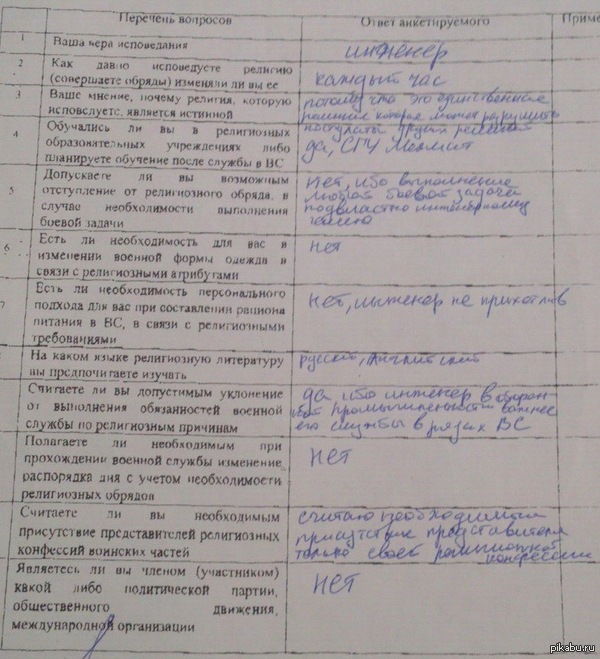 Перечень вопросов
Ответ анкетируемого
Приме
1
Ваша вера исповедания
инженер
2
Как давно исповедуете религию
(совершаете обряды) изменяли ли вы ее
каждый час
3
Ваше мнение, почему религия, которую
исповедуете, является истинной
потому что это единственная
религия которая может разрушить
постулаты других религий
4
Обучались ли вы в религиозных
образовательных учреждениях либо
планируете обучение после службы в ВС
да, СГУ
5
Допускаете ли вы возможным
отступление от религиозного обряда, в
случае необходимости выполнения
боевой задачи
нет, ибо выполнение
любой боевой задачи
подвластно инженерному
гению
6
Есть ли необходимость для вас в
изменении военной формы одежда в
связи с религиозными атрибутами
нет
7
Есть ли необходимость персонального
подхода для вас при составлении рациона
питания в ВС, в связи с религиозными
требованиями
нет, инженер не прихотлив
На каком языке религиозную литературу
вы предпочитаете изучать
русский, английский
Считаете ли вы допустимым уклонение
от выполнения обязанностей военной
службы по религиозным причинам
да, ибо инженер в оборон
ной промышленности важнее
его службы в рядах ВС
Полагаете ли необходимым при
прохождении военной службы изменение
распорядка дня с учетом необходимости
религиозных обрядов
нет
Считаете ли вы необходимым
присутствие представителей религиозных
конфессий воинских частей
считаю необходимым
присутствие представителя
только своей религиозной
конфессии
Являетесь ли вы членом (участником)
какой либо политической партии,
общественного движения,
международной организации
нет
pikabu.ru